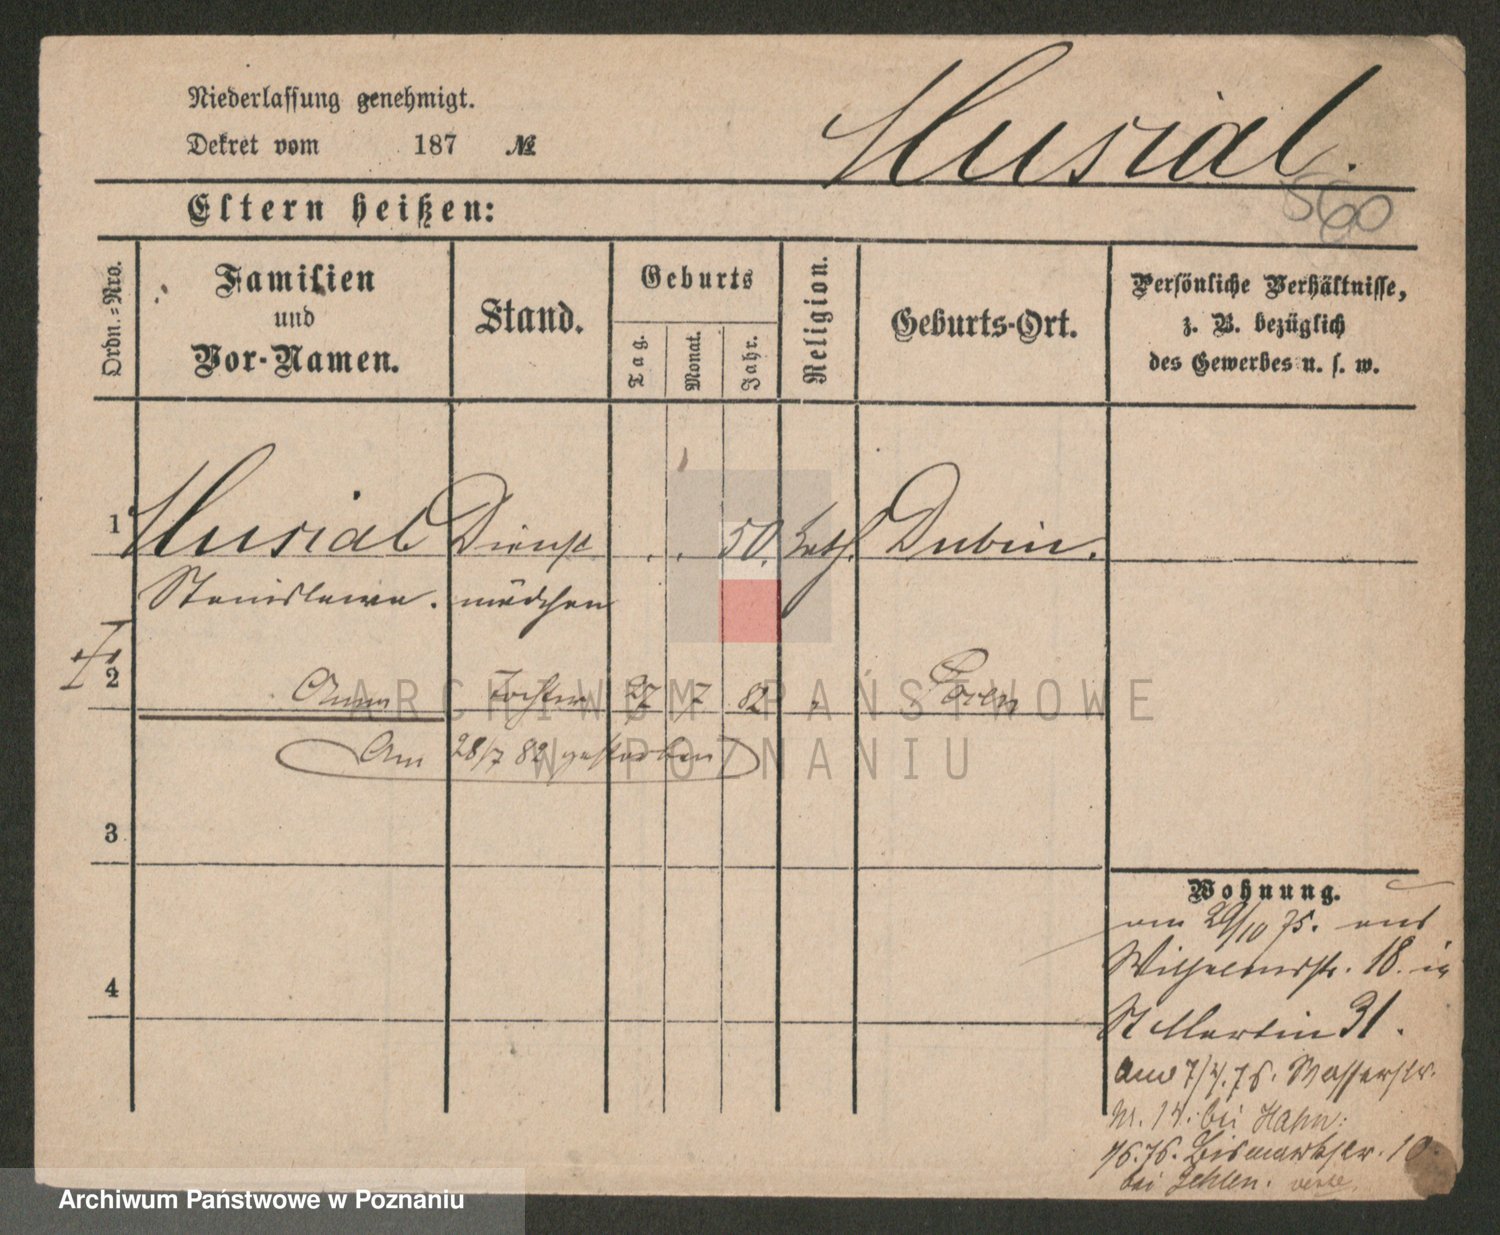 Niederlassung genehmigt.
Dekret vom 187 №
Musial.
560
Eltern heißen:
Ordn.-Nro.
Familien
und
Vor-Namen.
Stand.
Geburts
Tag.
Monat.
Jahr.
Religion.
Geburts-Ort.
Persönliche Verhältnisse,
z. B. bezüglich
des Gewerbes u. s. w.
1 Musial Dienst . . 50. kath. Dubin.
Stanislawa. mädchen
2 Anna Tochter 27 7 82 " Posen
Am 28/7 82 gestorben
3
4
Wohnung.
am 29/10 75. aus
Wilhelmstr. 18. in
St Martin 31.
am 7/4.76. Wasserstr.
Nr. 14. bei Hahn.
Bismarckstr. 10.
bei Jehlen.
ARCHIWUM PAŃSTWOWE
W POZNANIU
Archiwum Państwowe w Poznaniu